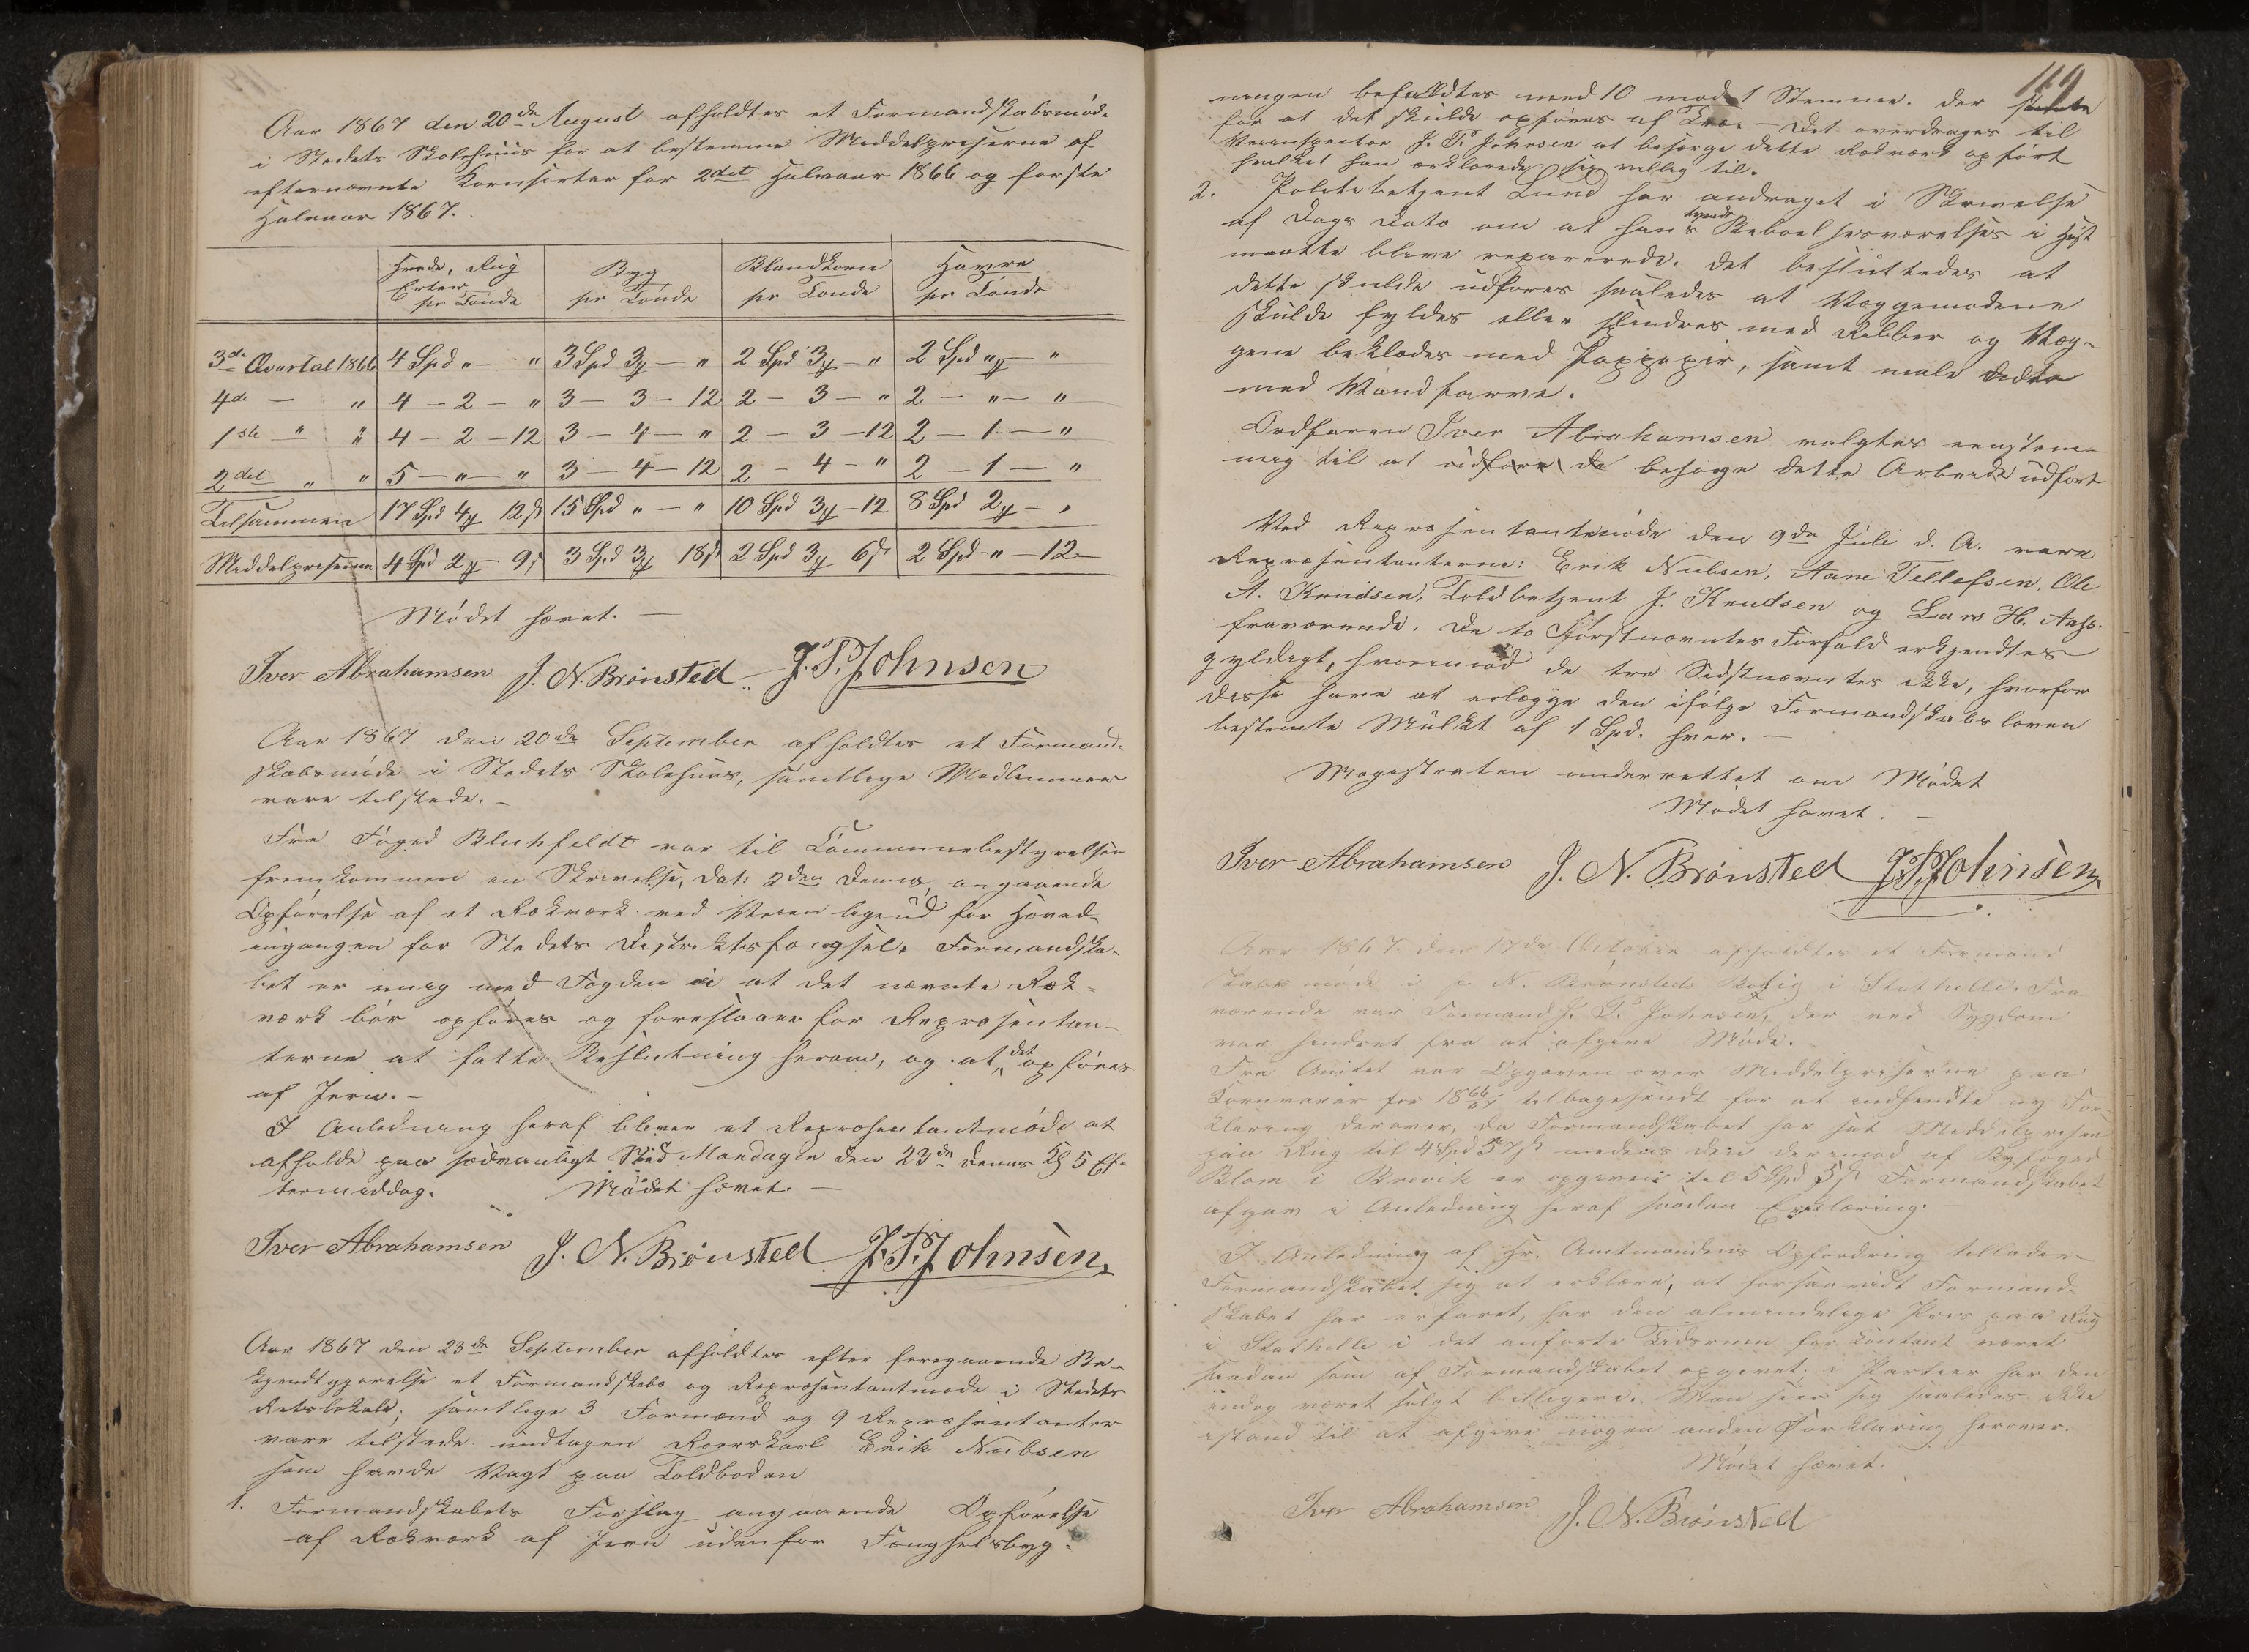 Aar 1867 den 20de August afholdtes et Formandskabsmøde
i Stedets Skolehuus for at bestemme Middelpriserne af
efternævnte Kornsorter for 2det Halvaar 1866 og første
Halvaar 1867.
Hvede, Rug Erter pr Tønde | Byg pr Tønde | Blandkorn pr Tønde | Havre pr Tønde
3de Qvartal 1866 | 4 Spd " - " | 3 Spd 3 - " | 2 Spd 3 - " | 2 Spd " "
4de — " | 4 - 2 - " | 3 - 3 - 12 | 2 - 3 - " | 2 - " - "
1ste " " | 4 - 2 - 12 | 3 - 4 - " | 2 - 3 - 12 | 2 - 1 - "
2det " " | 5 - " - " | 3 - 4 - 12 | 2 - 4 - " | 2 - 1 - "
Tilsammen | 17 Spd 4 12 | 15 Spd " - " | 10 Spd 3 - 12 | 8 Spd 2 - "
Middelpriserne | 4 Spd 2 - 9 | 3 Spd 3 18 | 2 Spd 3 6 | 2 Spd - " - 12
Mødet hævet. —
Iver Abrahamsen J. N. Brønsted J. P. Johnsen
Aar 1867 den 20de September afholdtes et Formand-
skabsmøde i Stedets Skolehuus, samtlige Medlemmer
vare tilstede. —
Fra Foged Blichfeldt var til Communebestyrelsen
fremkommen en Skrivelse, dat: 2den Dennes, angaaende
Opførelse af et Rækværk ved Veien ligeud for Hoved-
indgangen for Stedets Distriktsfængsel. Formandska-
bet er enig med Fogden i at det nævnte Ræk-
værk bør opføres og foreslaaer for Repræsentan-
terne at fatte Beslutning herom, og at det opføres
af Jern. —
I Anledning heraf bliver et Repræsentantmøde at
afholde paa sædvanligt Sted Mandagen den 23de Dennes Kl 5 Ef-
termiddag. Mødet hævet. —
Iver Abrahamsen J. N. Brønsted J. P. Johnsen
Aar 1867 den 23de September afholdtes efter foregaaende Be-
kjendtgjørelse et Formandskabs og Repræsentantmøde i Stedets
Retslokale; samtlige 3 Formænd og 9 Repræsentanter
vare tilstede undtagen Roerskarl Erik Nubsen
som havde Vagt paa Toldboden
1. Formandskabets Forslag angaaende Opførelse
af Rækværk af Jern udenfor Fængselsbyg-
119
ningen bifaldtes med 10 mod 1 Stemme. der stemte
for at det skulde opføres af Træ. — Det overdrages til
Veiinspektør J. P. Johnsen at besørge dette Rækværk opført
hvilket han erklærede sig villig til.
2. Politibetjent Lund har andraget i Skrivelse
af Dags Dato om at hans tvende Beboelsesværelser i Huset
maatte blive reparerede. Det besluttedes at
dette skulde udføres saaledes at Væggene
skulde fyldes eller med Ribber og Væg-
gene beklædes med Pappapir, samt male dette
med Vandfarve.
Ordføreren Iver Abrahamsen valgtes eenstem-
mig til at udføre de besørge dette Arbeide udført
Ved Repræsentantmøde den 9de Juli d. A. vare
Repræsentanterne: Erik Nubsen, Aane Tellefsen, Ole
A. Knudsen, Toldbetjent J. Knudsen og Lars H. Aass.
fraværende. De to Førstnævntes Forfald erkjendtes
gyldigt, hvorimod de tre Sidstnævntes ikke, hvorfor
disse have at erlægge den ifølge Formandskabsloven
bestemte Mulkt af 1 Spd. hver. —
Magistraten underrettet om Mødet
Mødet hævet. —
Iver Abrahamsen J. N. Brønsted J. P. Johnsen
Aar 1867 den 17de October afholdtes et Formand
skabsmøde i J. N. Brønsteds Bolig i Stathelle. Fra
værende var Formand J. P. Johnsen, der ved Sygdom
var hindret fra at afgive Møde.
Fra Amtet var Opgaven over Middelpriserne paa
Kornvarer for 1866/67 tilbagesendt for at indhendte ny For-
klaring derover, da Formandskabet har sat Middelprisen
paa Rug til 4 Spd 57 medens den derimod af Byfoged
Blom i Brevik er opgiven til 5 Spd 5 Formandskabet
afgav i Anledning heraf saadan Erklæring.
I Anledning af Hr. Amtmandens Opfordring tillader
Formandskabet sig at erklære, at forsaavidt Formand-
skabet har erfaret, har den almindelige Priis paa Rug
i Stathelle i det anførte Tidsrum for Contant været
saadan som af Formandskabet opgivet, i Partier har den
endog været solgt billigere. Man seer sig saaledes ikke
istand til at afgive nogen anden Forklaring herover.
Mødet hævet.
Iver Abrahamsen J. N. Brønsted